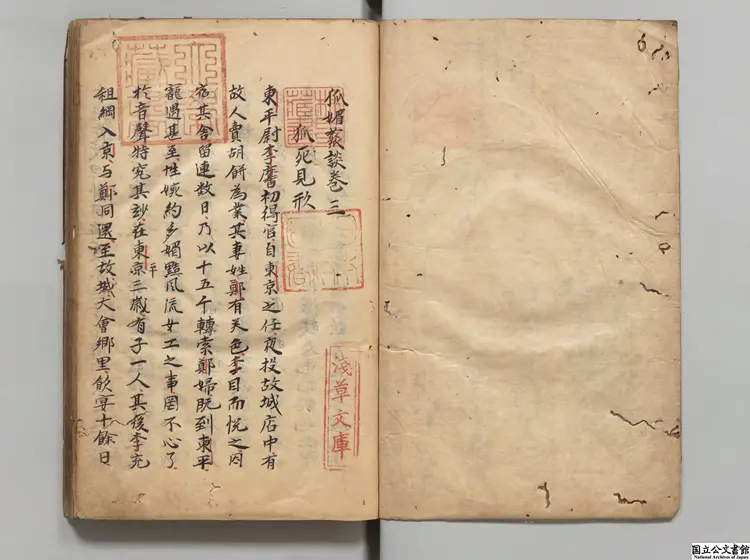 狐媚叢談卷三
狐死見形
東平尉李黁初得官自東京之任夜投故城店中有
故人賣胡餅為業其妻姓鄭有美色李目而悅之因
宿其舍留連数日乃以十五千轉索鄭婦既到東平
寵遇甚至性婉約多媚黠風流女工之事罔不心了
於音聲特究其妙在東京三歲有子一人其後李充
平
租綱入京与鄭同還至故城大會鄉里飲宴十餘日
淺草文庫
国立公文書館
National Archives of Japan